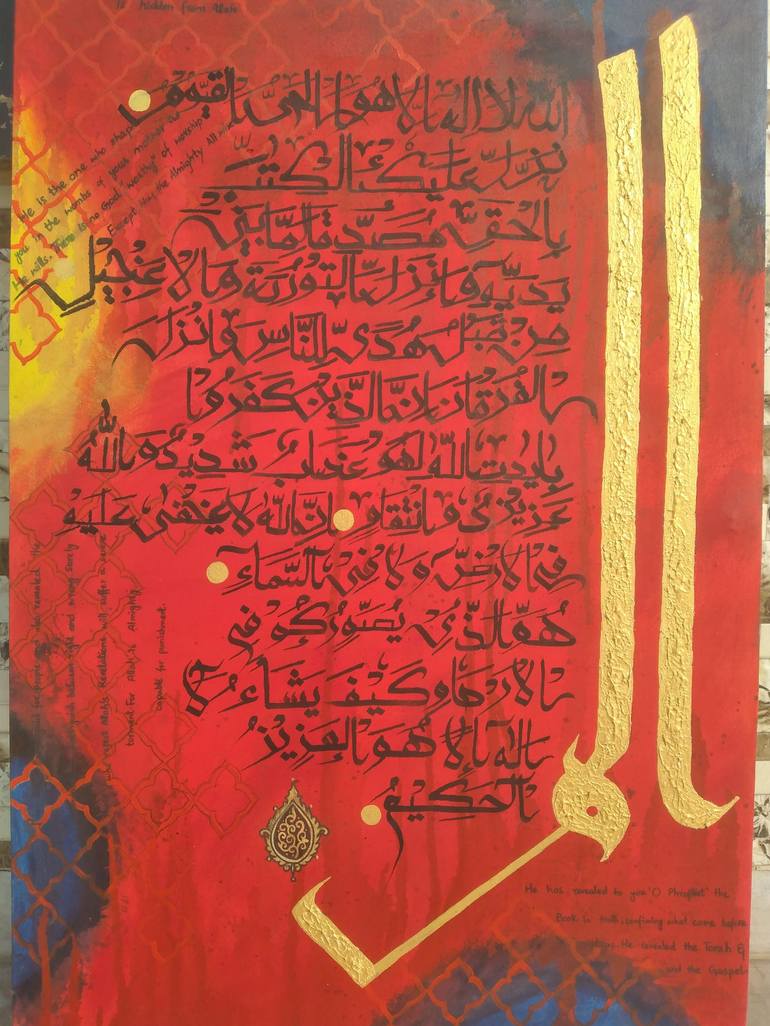 is hidden from Allah
الم
اللّه لا اله الا هو الحىّ القيّوم
نزّل عليك الكتب
بالحقّ مصدّقا لّما بين
يديه وانزل التّورىة والانجيل
من قبل هدًى لّلنّاس وانزل
الفرقان انّ الذّين كفروا
بايت اللّه لهم عذاب شديد واللّه
عزيز ذو انتقام انّ اللّه لا يخفى عليه
فى الارض ولا فى السّماء
هو الذّى يصوّركم فى
الارحام كيف يشاء لا
اله الا هو العزيز
الحكيم
He is the one who shapes
you in the wombs of your mother as
He wills. There is no God "worthy" of worship
Except Him, the Almighty All
right and wrong Surely
Allah's Revelations will suffer a severe
torment For Allah is Almighty
capable for punishment.
He has revealed to you 'O Phrophet' the
Book in truth, confirming what came before
He revealed the Torah &
and the Gospel.